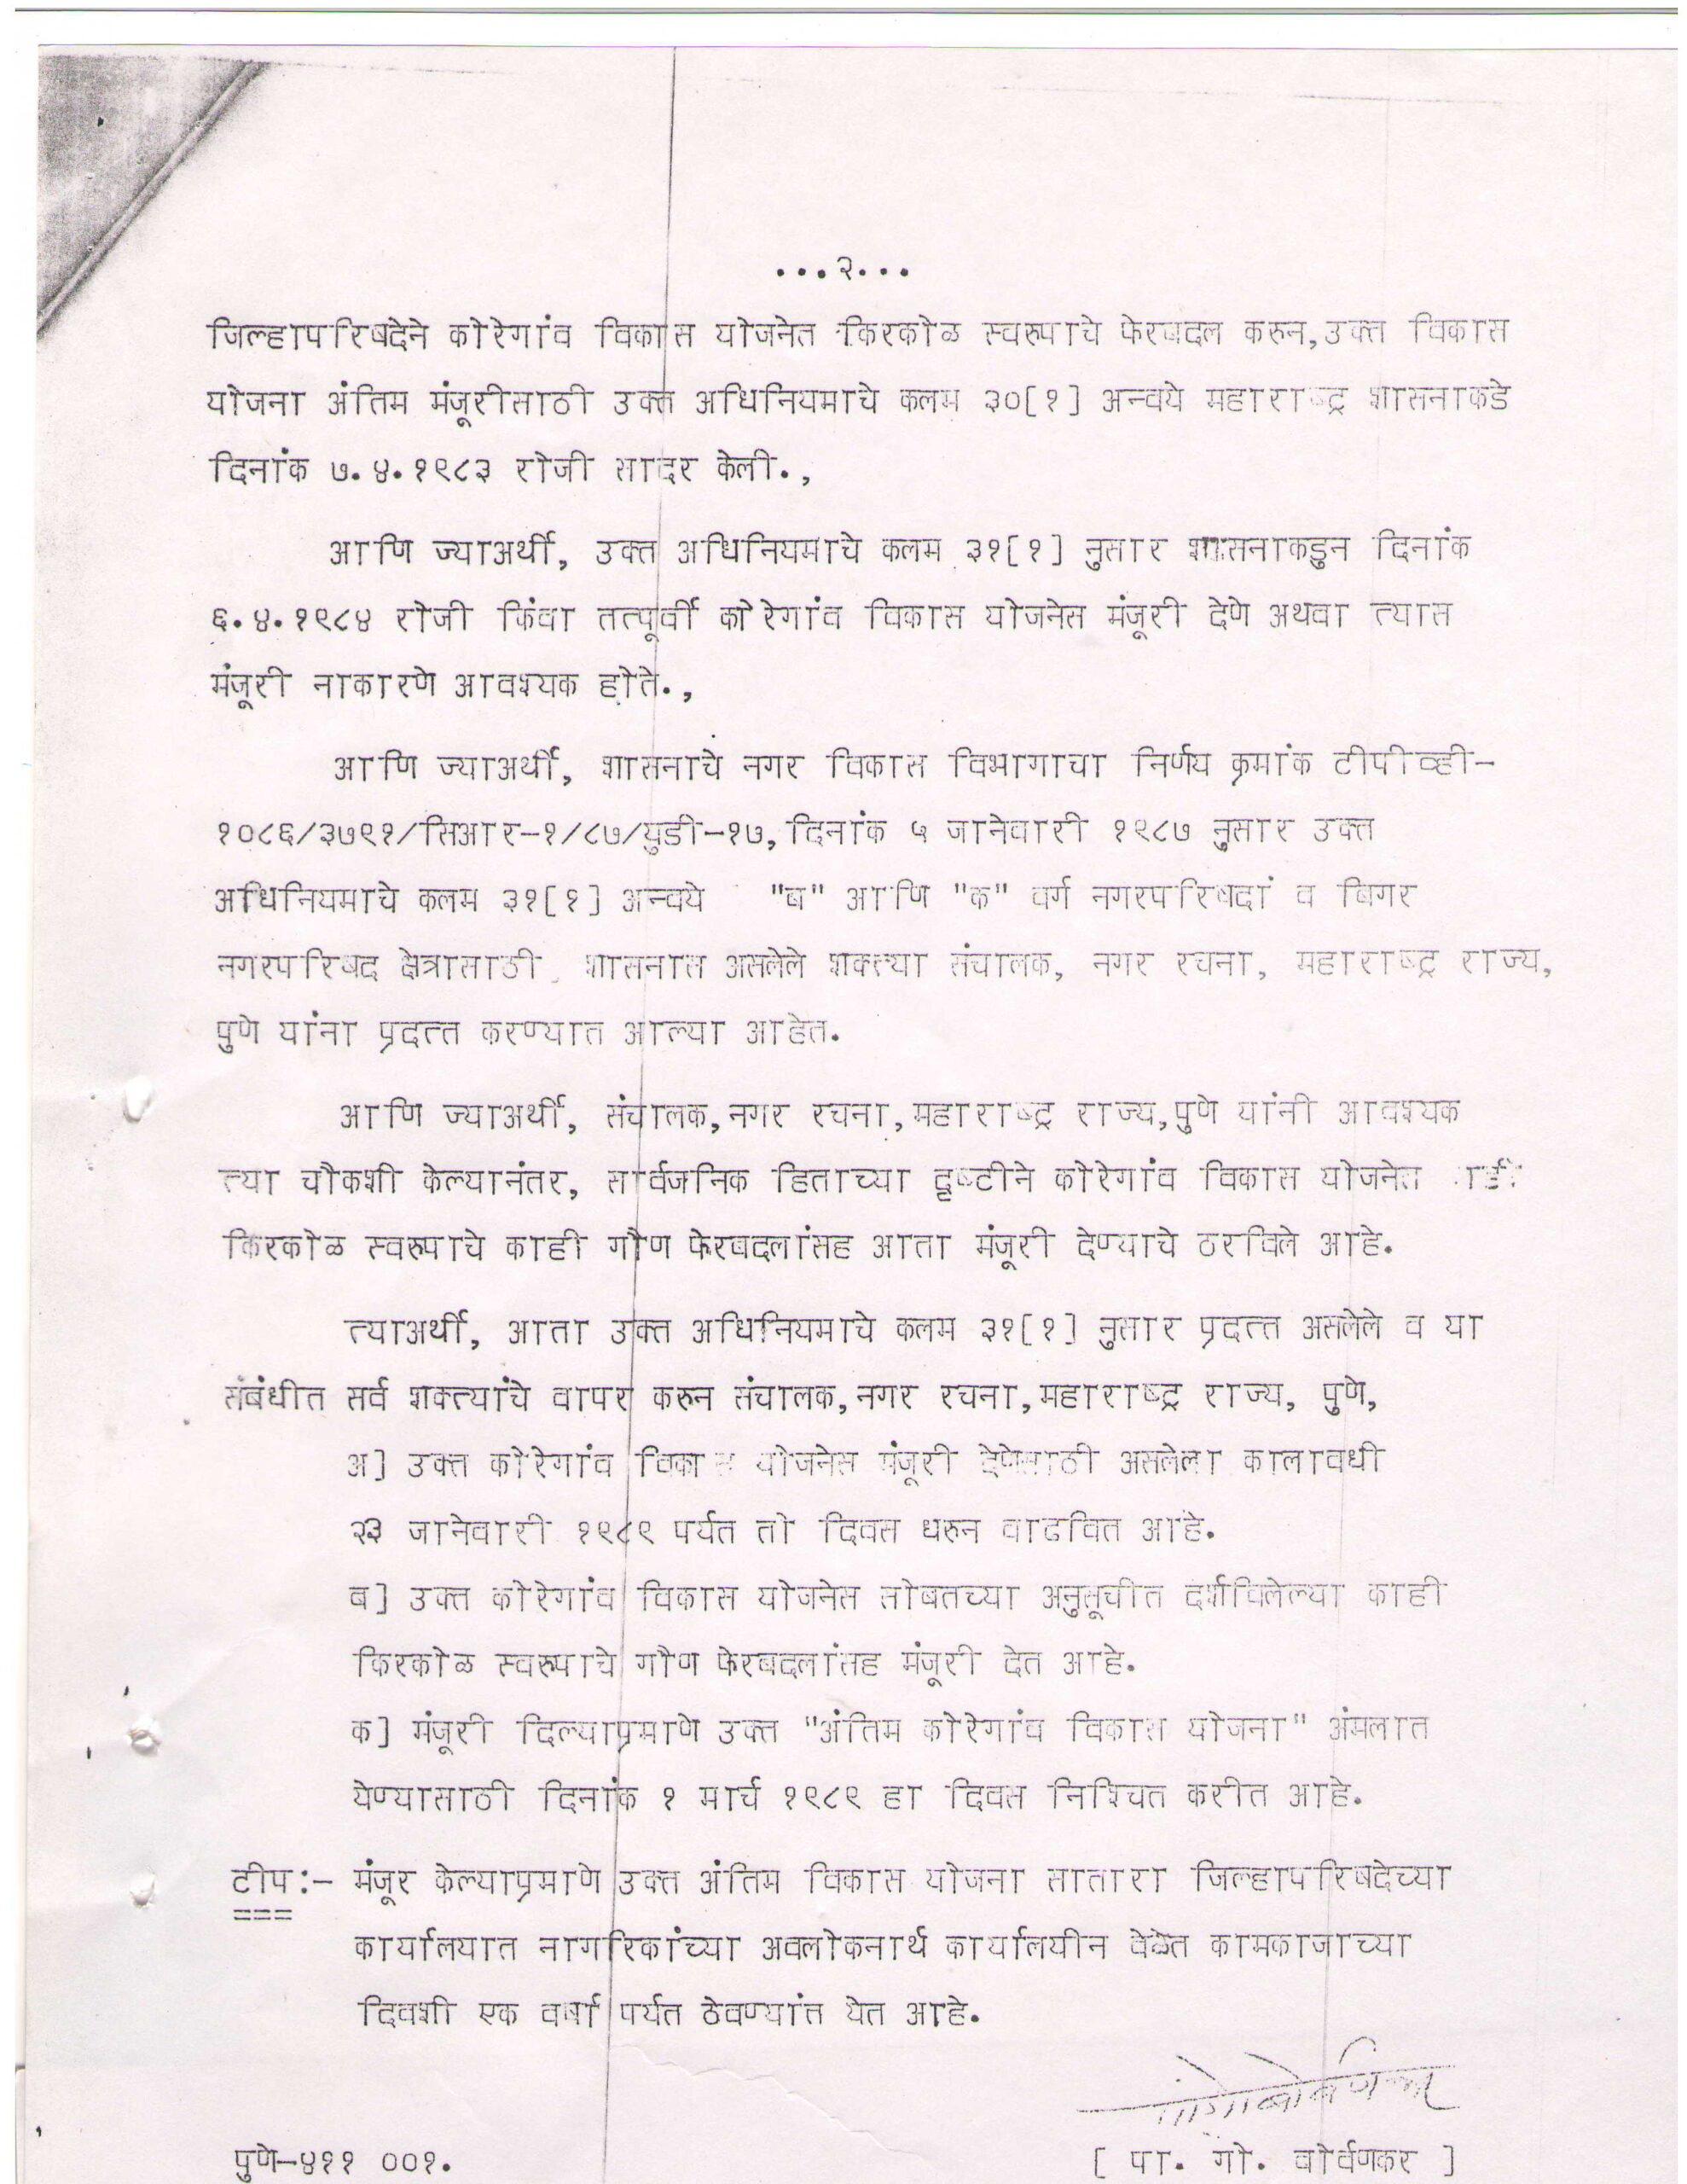 ...२...
जिल्हापरिषदेने कोरेगांव विकास योजनेत किरकोळ स्वरुपाचे फेरबदल करुन,उक्त विकास
योजना अंतिम मंजूरीसाठी उक्त अधिनियमाचे कलम ३०[१] अन्वये महाराष्ट्र शासनाकडे
दिनांक ७.४.१९८३ रोजी सादर केली.,
आणि ज्याअर्थी, उक्त अधिनियमाचे कलम ३१[१] नुसार शासनाकडुन दिनांक
६.४.१९८४ रोजी किंवा तत्पूर्वी कोरेगांव विकास योजनेस मंजूरी देणे अथवा त्यास
मंजूरी नाकारणे आवश्यक होते.,
आणि ज्याअर्थी, शासनाचे नगर विकास विभागाचा निर्णय क्रमांक टीपीव्ही-
१०८६/३७९१/सिआर-१/८७/युडी-१७, दिनांक ५ जानेवारी १९८७ नुसार उक्त
अधिनियमाचे कलम ३१[१] अन्वये "ब" आणि "क" वर्ग नगरपरिषदां व बिगर
नगरपरिषद क्षेत्रासाठी शासनास असलेले शक्त्या संचालक, नगर रचना, महाराष्ट्र राज्य,
पुणे यांना प्रदत्त करण्यात आल्या आहेत.
आणि ज्याअर्थी, संचालक,नगर रचना,महाराष्ट्र राज्य,पुणे यांनी आवश्यक
त्या चौकशी केल्यानंतर, सार्वजनिक हिताच्या दृष्टीने कोरेगांव विकास योजनेत
किरकोळ स्वरुपाचे काही गौण फेरबदलांसह आता मंजूरी देण्याचे ठरविले आहे.
त्याअर्थी, आता उक्त अधिनियमाचे कलम ३१[१] नुसार प्रदत्त असलेले व या
संबंधीत सर्व शक्त्यांचे वापर करुन संचालक,नगर रचना,महाराष्ट्र राज्य, पुणे,
अ] उक्त कोरेगांव विकास योजनेस मंजूरी देणेसाठी असलेला कालावधी
२३ जानेवारी १९८९ पर्यत तो दिवस धरुन वाढवित आहे.
ब] उक्त कोरेगांव विकास योजनेस सोबतच्या अनुसूचीत दर्शविलेल्या काही
किरकोळ स्वरुपाचे गौण फेरबदलांसह मंजूरी देत आहे.
क] मंजूरी दिल्याप्रमाणे उक्त "अंतिम कोरेगांव विकास योजना" अंमलात
येण्यासाठी दिनांक १ मार्च १९८९ हा दिवस निश्चित करीत आहे.
टीप:- मंजूर केल्याप्रमाणे उक्त अंतिम विकास योजना सातारा जिल्हापरिषदेच्या
===
कार्यालयात नागरिकांच्या अवलोकनार्थ कार्यालयीन वेळेत कामकाजाच्या
दिवशी एक वर्षा पर्यत ठेवण्यांत येत आहे.
पुणे-४११ ००१.
[ पा. गो. बोर्वणकर ]